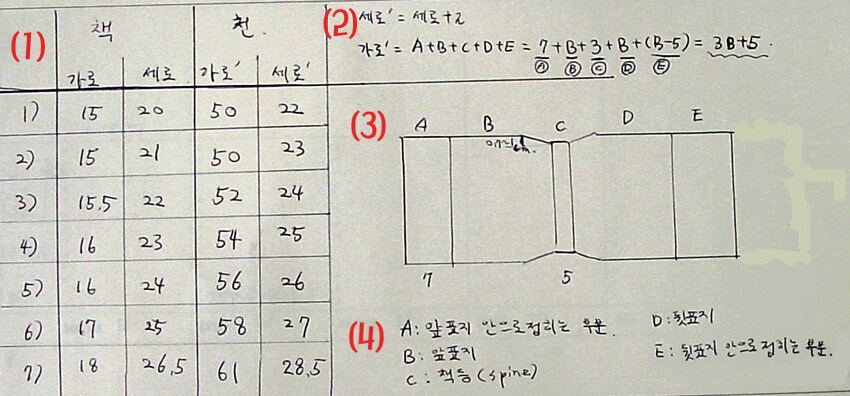 (1)
책 천
가로 세로 가로' 세로'
1) 15 20 50 22
2) 15 21 50 23
3) 15.5 22 52 24
4) 16 23 54 25
5) 16 24 56 26
6) 17 25 58 27
7) 18 26.5 61 28.5
(2) 세로' = 세로+2
가로' = A+B+C+D+E = 7+B+3+B+(B-5) = 3B+5.
A B C D E
(3)
A B C D E
7 5
(4) A: 앞표지 안으로접히는 부분.
B: 앞표지
C: 책등(spine)
D: 뒷표지
E: 뒷표지 안으로접히는 부분.